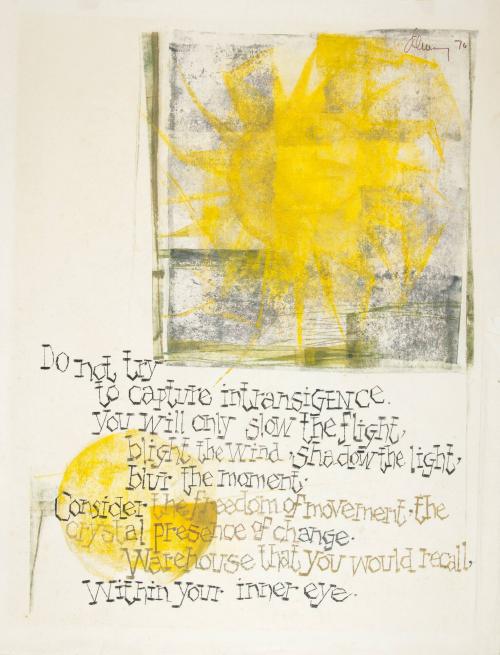 '76
Do not try
to capture intransigence.
you will only slow the flight,
blight the wind, shadow the light,
blur the moment.
Consider the freedom of movement, the
crystal presence of change.
Warehouse that you would recall,
Within your inner eye.